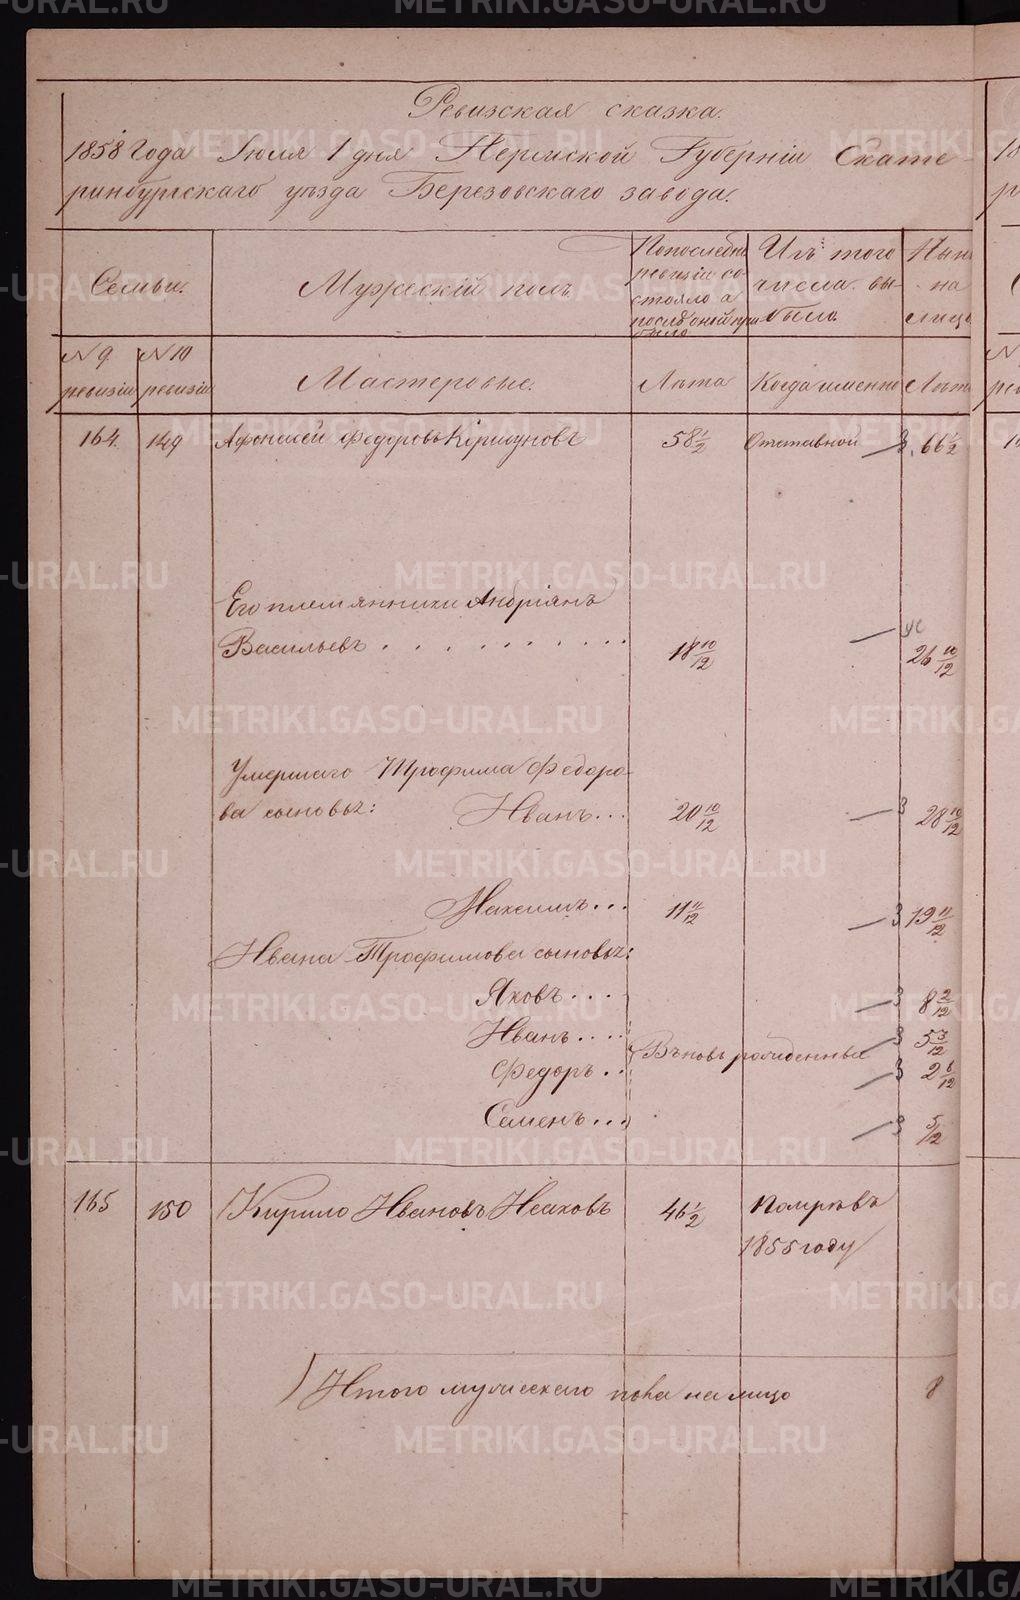 Ревизская сказка.
1858 Года Июля 1 дня Пермской Губерніи Екате-
ринбургскаго уѣзда Березовскаго завода.
Семьи.
Мужескій полъ.
По последней ревизіи состояло а послѣ оной прибыло
Изъ того числа выбыло.
Ныне на лицо
N 9. ревизіи
N 10 ревизіи
Мастеровые.
Лѣта
Когда именно
Лѣта
164. 149 Афонасей Федоровъ 58 1/2 Отставной 3. 66 1/2
Его племянники Андріянъ
Васильевъ . . . . . . . . . 18 10/12 26 10/12
Умершаго Трофима Федоро-
ва сыновья: Иванъ... 20 10/12 3 28 10/12
Максимъ... 11 11/12 3 19 11/12
Ивана Трофимова сыновья:
Яковъ.... 3 8 2/12
Иванъ.... 3 5 3/12
Вновь рожденные
Федоръ.. 3 2 6/12
Семенъ... 3 5/12
165 150 Кирило Ивановъ Исаковъ 46 1/2 Помръ въ
1855 году
Итого мужескаго пола на лицо 8
METRIKI.GASO-URAL.RU